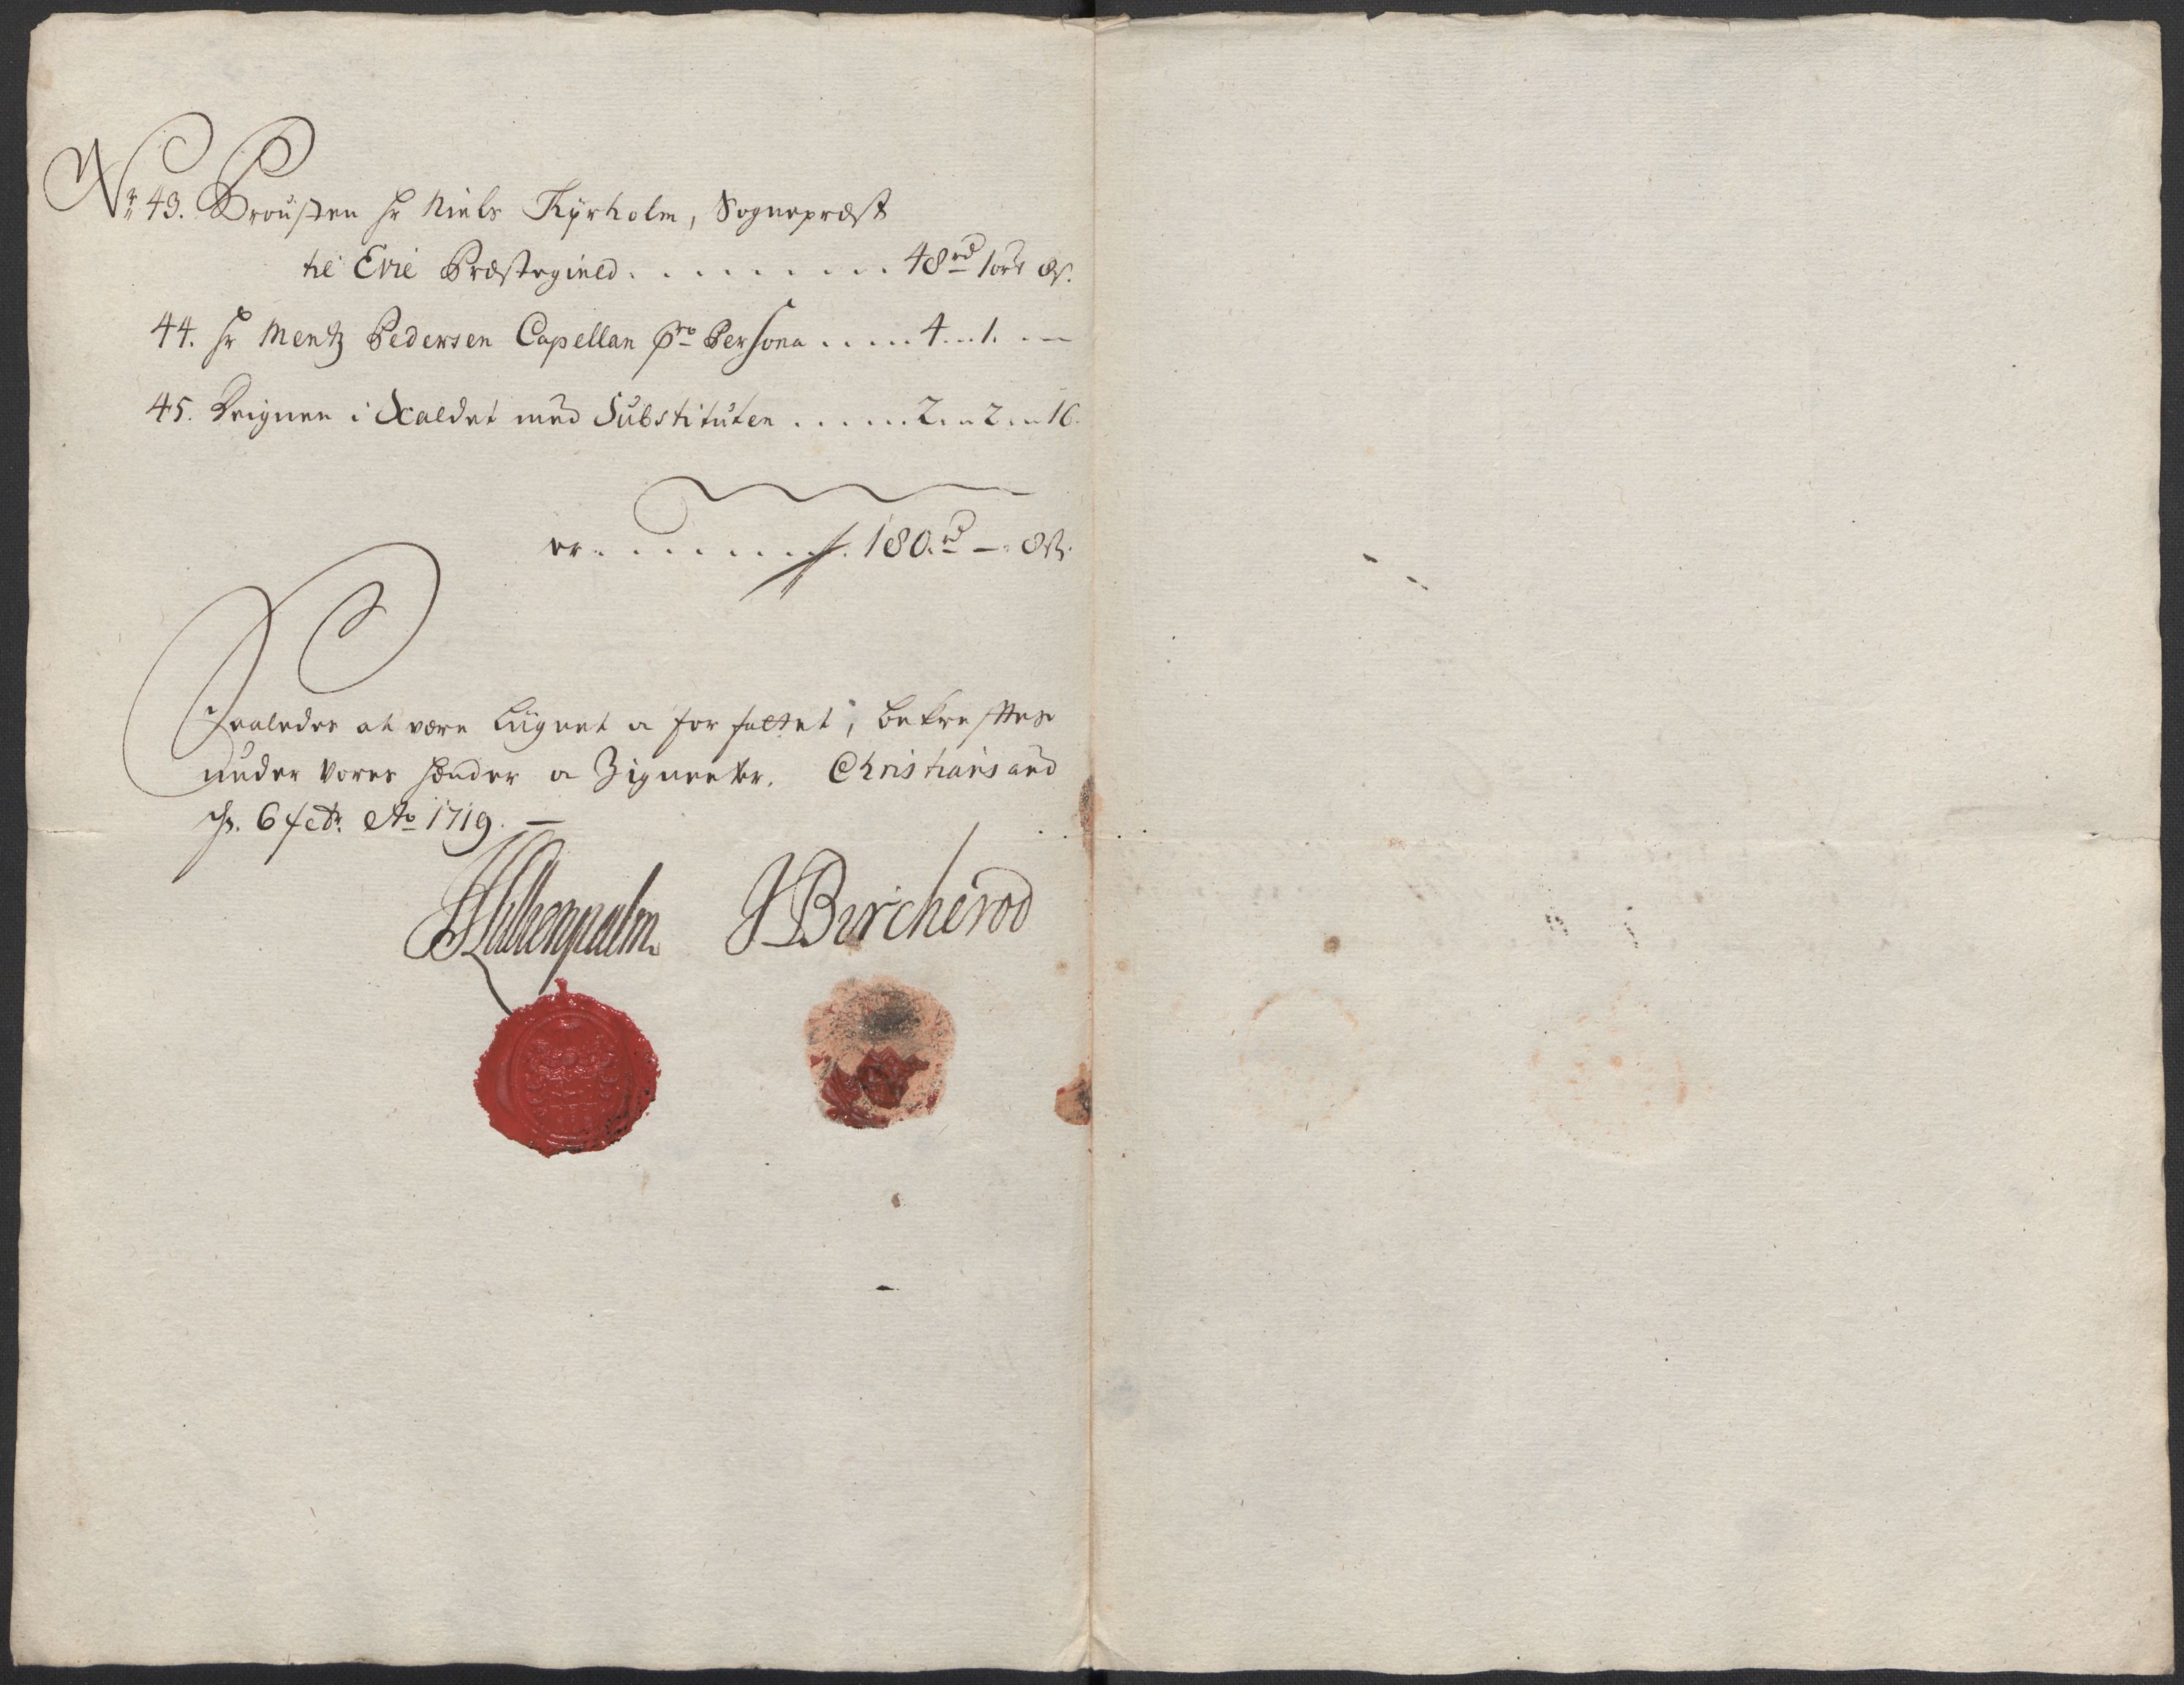 Nr. 43. Prousten Hr Niels Thyrholm, Sognepræst
til Evie Præstegield. . . . . . . . . 48rd 1ort 8s.
44. Hr Mentz Pedersen Capellan pro Persona . . . . . 4 . . 1. —
45. Deignen i Kaldet med Substituten . . . . . . 2 . . 2 . . 16.
er . . . . . . . . 180.rd — 8s.
Saaledes at være Lignet og forfattet, bekreftes
under vores Hænder og Zigneter. Christiansand
d. 6 febr. Ao 1719. —
J Birckerod